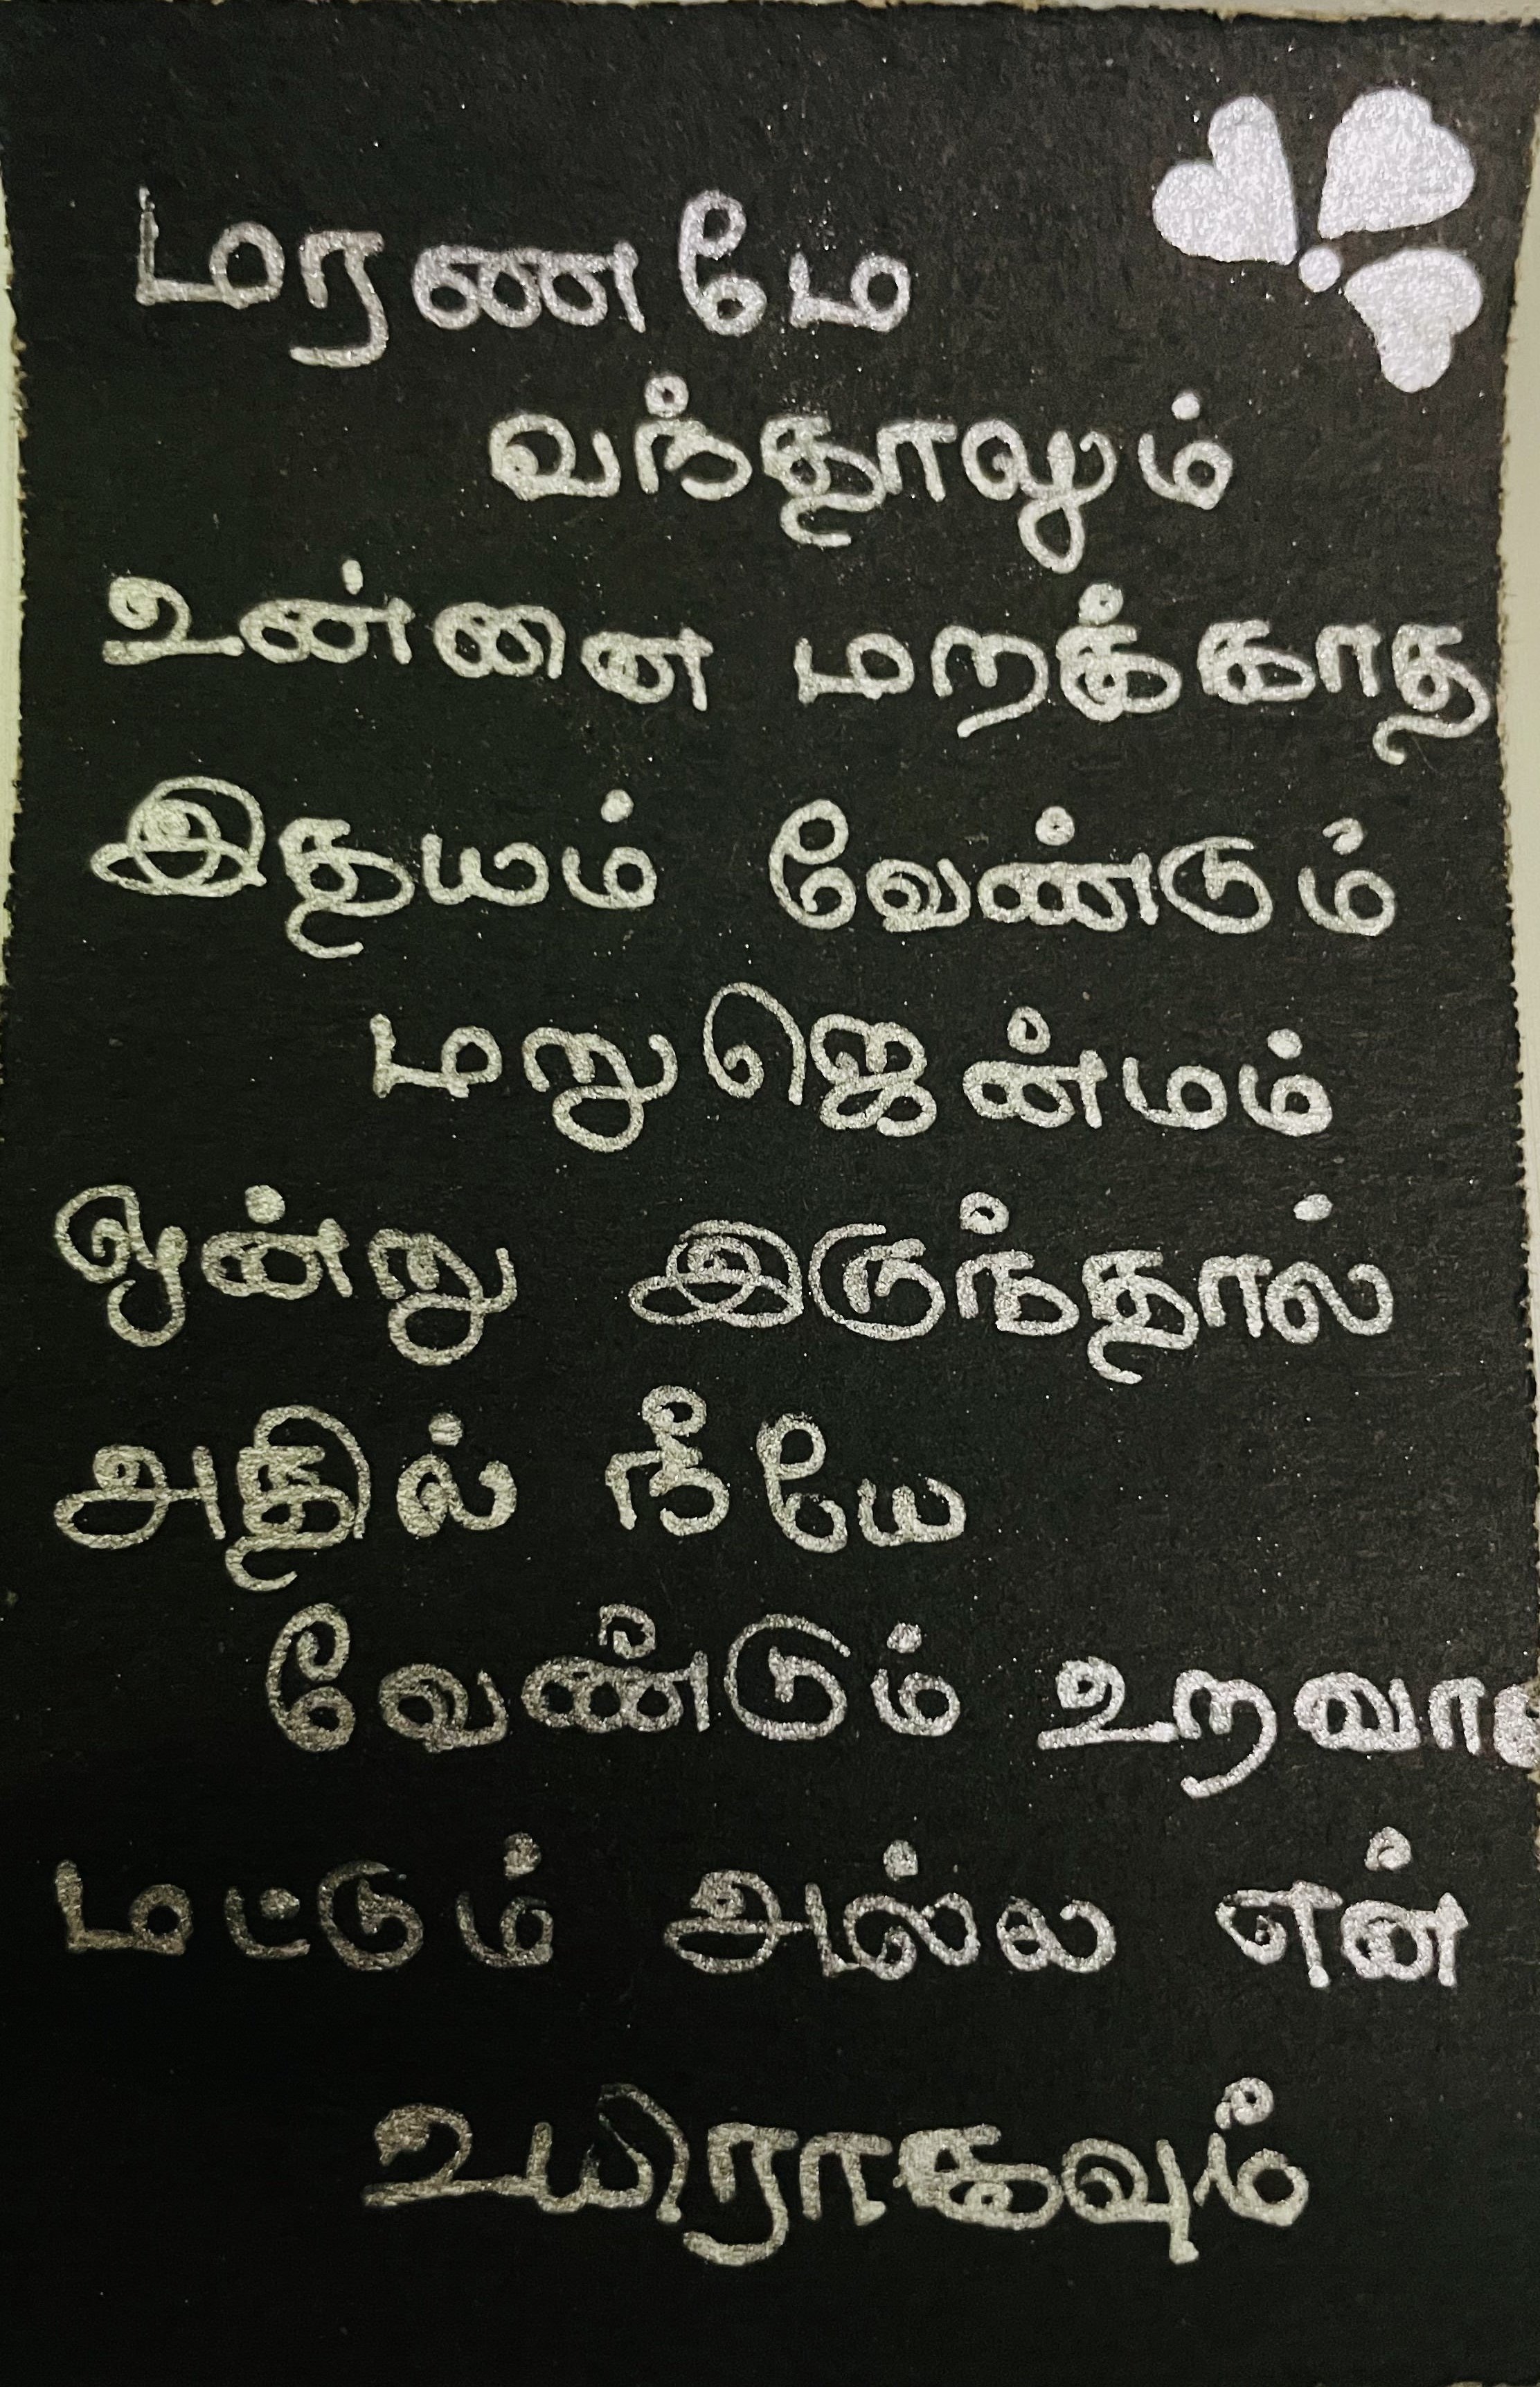 மரணமே
வந்தாலும்
உன்னை மறக்காத
இதயம் வேண்டும்
மறுஜென்மம்
ஒன்று இருந்தால்
அதில் நீயே
வேண்டும்
மட்டும் அல்ல என்
உயிராகவும்